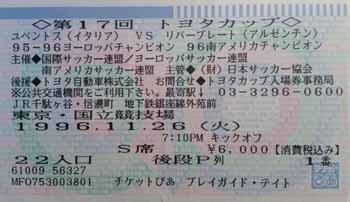 ◇第17回 トヨタカップ◇
ユベントス(イタリア) VS リバープレート(アルゼンチン)
95-96ヨーロッパチャンピオン 96南アメリカチャンピオン
主催◆国際サッカー連盟/ヨーロッパサッカー連盟
南アメリカサッカー連盟 主管◆(財)日本サッカー協会
後援◆トヨタ自動車株式会社 お問合◆トヨタカップ入場券事務局
※公共交通機関をご利用下さい。最寄駅↓ 03-3296-0600
JR千駄ヶ谷・信濃町 地下鉄銀座線外苑前
東京・国立競技場
1996.11.26(火)
7:10PM キックオフ
S席 ¥6,000【消費税込み】
22入口 後段P列 1番
61009 56327
MF0753003801 チケットぴあ プレイガイド・テイト